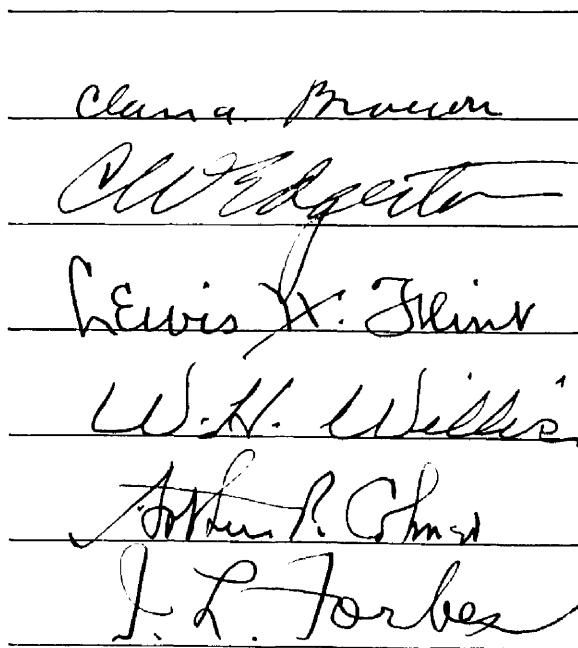 Clara A. Brown
CW Edgerton
Lewis H. Flint
W. H. Willis
Arthur R. Colmer
I. L. Forbes